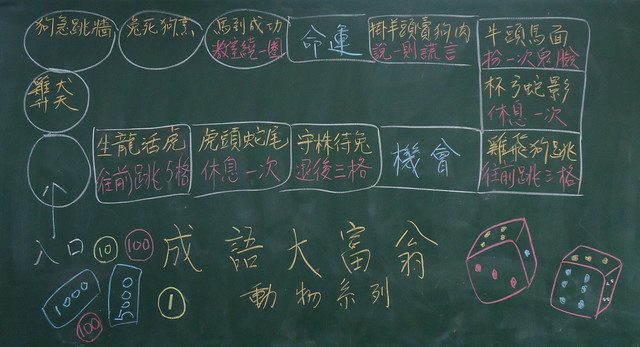 狗急跳牆
兔死狗烹
馬到成功
教室繞一圈
命運
掛羊頭賣狗肉
說一則謊言
牛頭馬面
扮一次鬼臉
雞犬
升天
杯弓蛇影
休息一次
生龍活虎
往前跳5格
虎頭蛇尾
休息一次
守株待兔
退後三格
機會
雞飛狗跳
往前跳三格
入口
10
100
成語大富翁
動物系列
1000
5000
1
100